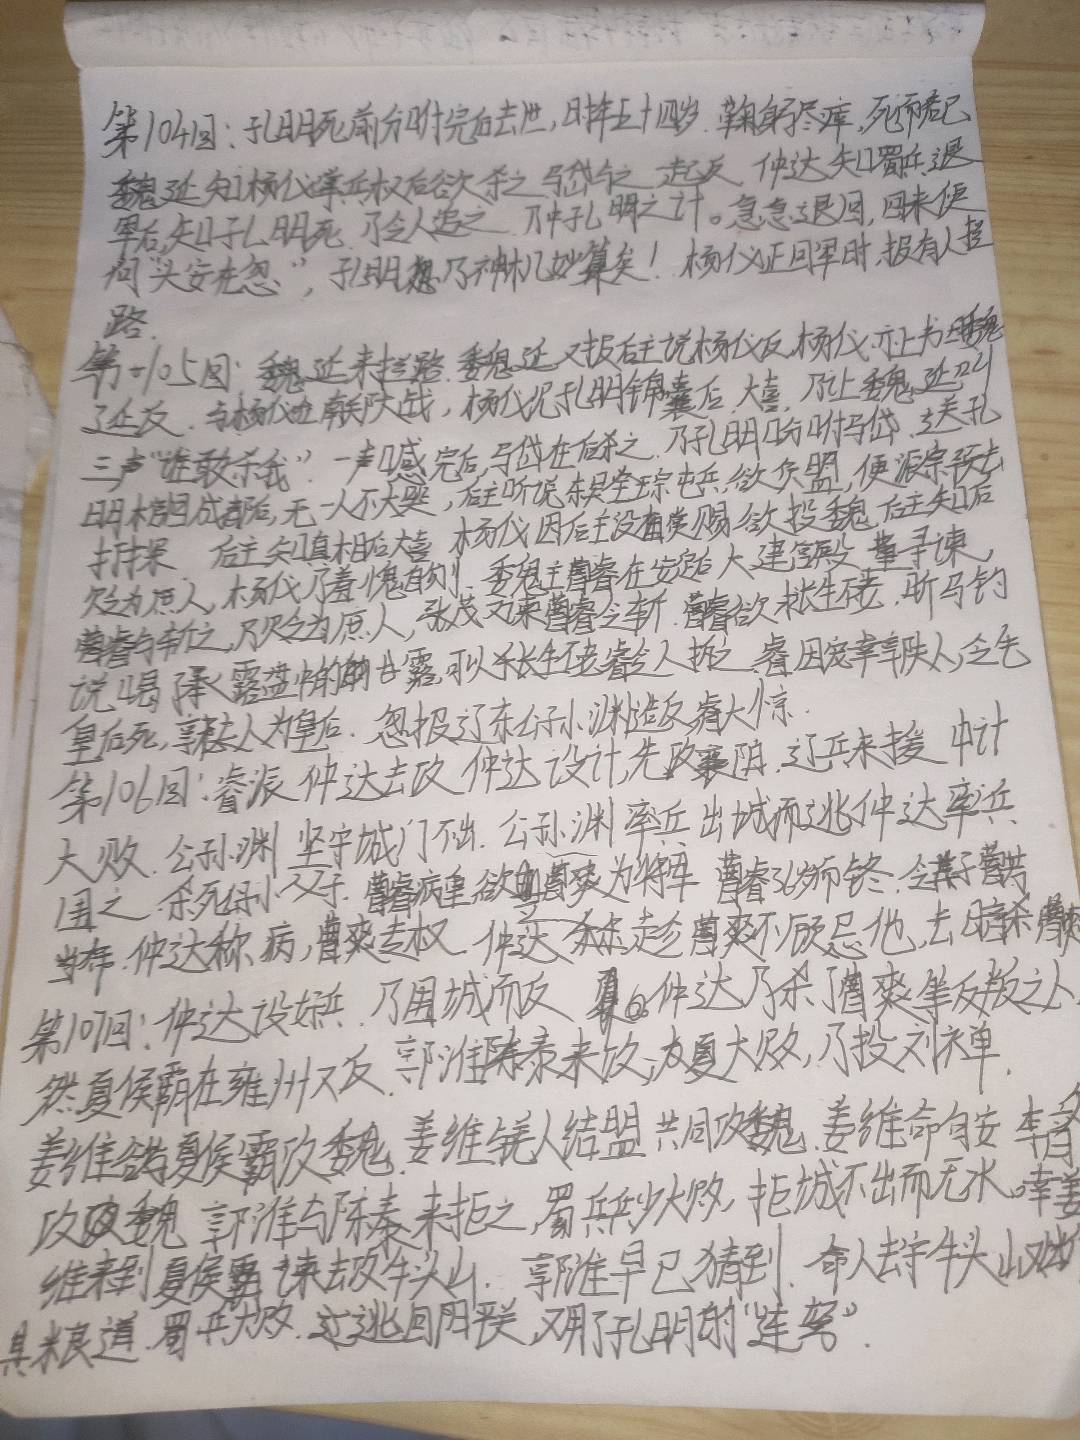 第104回：孔明死前分咐完后去世，时年五十四岁．鞠躬尽瘁，死而后已
魏延知杨仪掌兵权后欲杀之马岱与之一起反 仲达知蜀兵退
军后，知孔明死 乃令人追之 乃中孔明之计。急急退回，回来便
问“头安在忽”，孔明想乃神机妙算矣！杨仪正回军时，报有人拦
路．
第105回：魏延来拦路．魏延又报后主说杨仪反，杨仪亦上书曰魏
了延反．与杨仪在南郑大战，杨仪况孔明锦囊后，大喜，乃让魏延叫
三声“谁敢杀我”．一声喊完后，马岱在后杀之．乃孔明分咐马岱．送关孔
明木棺回成都后，无一人不大哭，后主听说东吴全琮屯兵，欲负盟，便派宗预去
打探 后主知真相后大喜．杨仪因后主没有赏赐欲投魏 后主知后
欠为庶人，杨仪乃羞愧自刎．魏主曹睿在安定后大建宫殿 董寻谏，
曹睿与斩之，乃欠为庶人，张茂又谏曹睿令斩．曹睿欲求长生不老．听马钧
说喝承露盘中的甘露，可以长生不老睿令人拆之．睿因宠幸郭夫人，令毛
皇后死，郭夫人为皇后．忽报辽东公孙渊造反睿大惊．
第106回：睿派仲达去攻 仲达设计，先攻襄阳．辽兵来援 中计
大败．公孙渊坚守城门不出．公孙渊率兵出城而逃仲达率兵
围之．杀死公孙父子．曹睿病重欲曹爽为将军 曹睿36岁而终．令其子曹芳
当帝．仲达称病，曹爽专权．仲达 曹爽不顾忌他，去
第107回：仲达设奸兵．乃围城而反 仲达乃杀了曹爽等反叛之人．
然夏侯霸在雍州又反．郭淮陈泰来攻，夏大败，乃投刘禅．
姜维令夏侯霸攻魏．姜维与羌人结盟 共同攻魏．姜维命句安 李歆
攻魏 郭淮与陈泰来拒之，蜀兵兵少大败，拒城不出而无水。幸姜
维来到夏侯霸谏去攻牛头山．郭淮早已猜到．命人去守牛头山又
具粮道．蜀兵大败．逃回阳平关，又用了孔明的“连弩”．